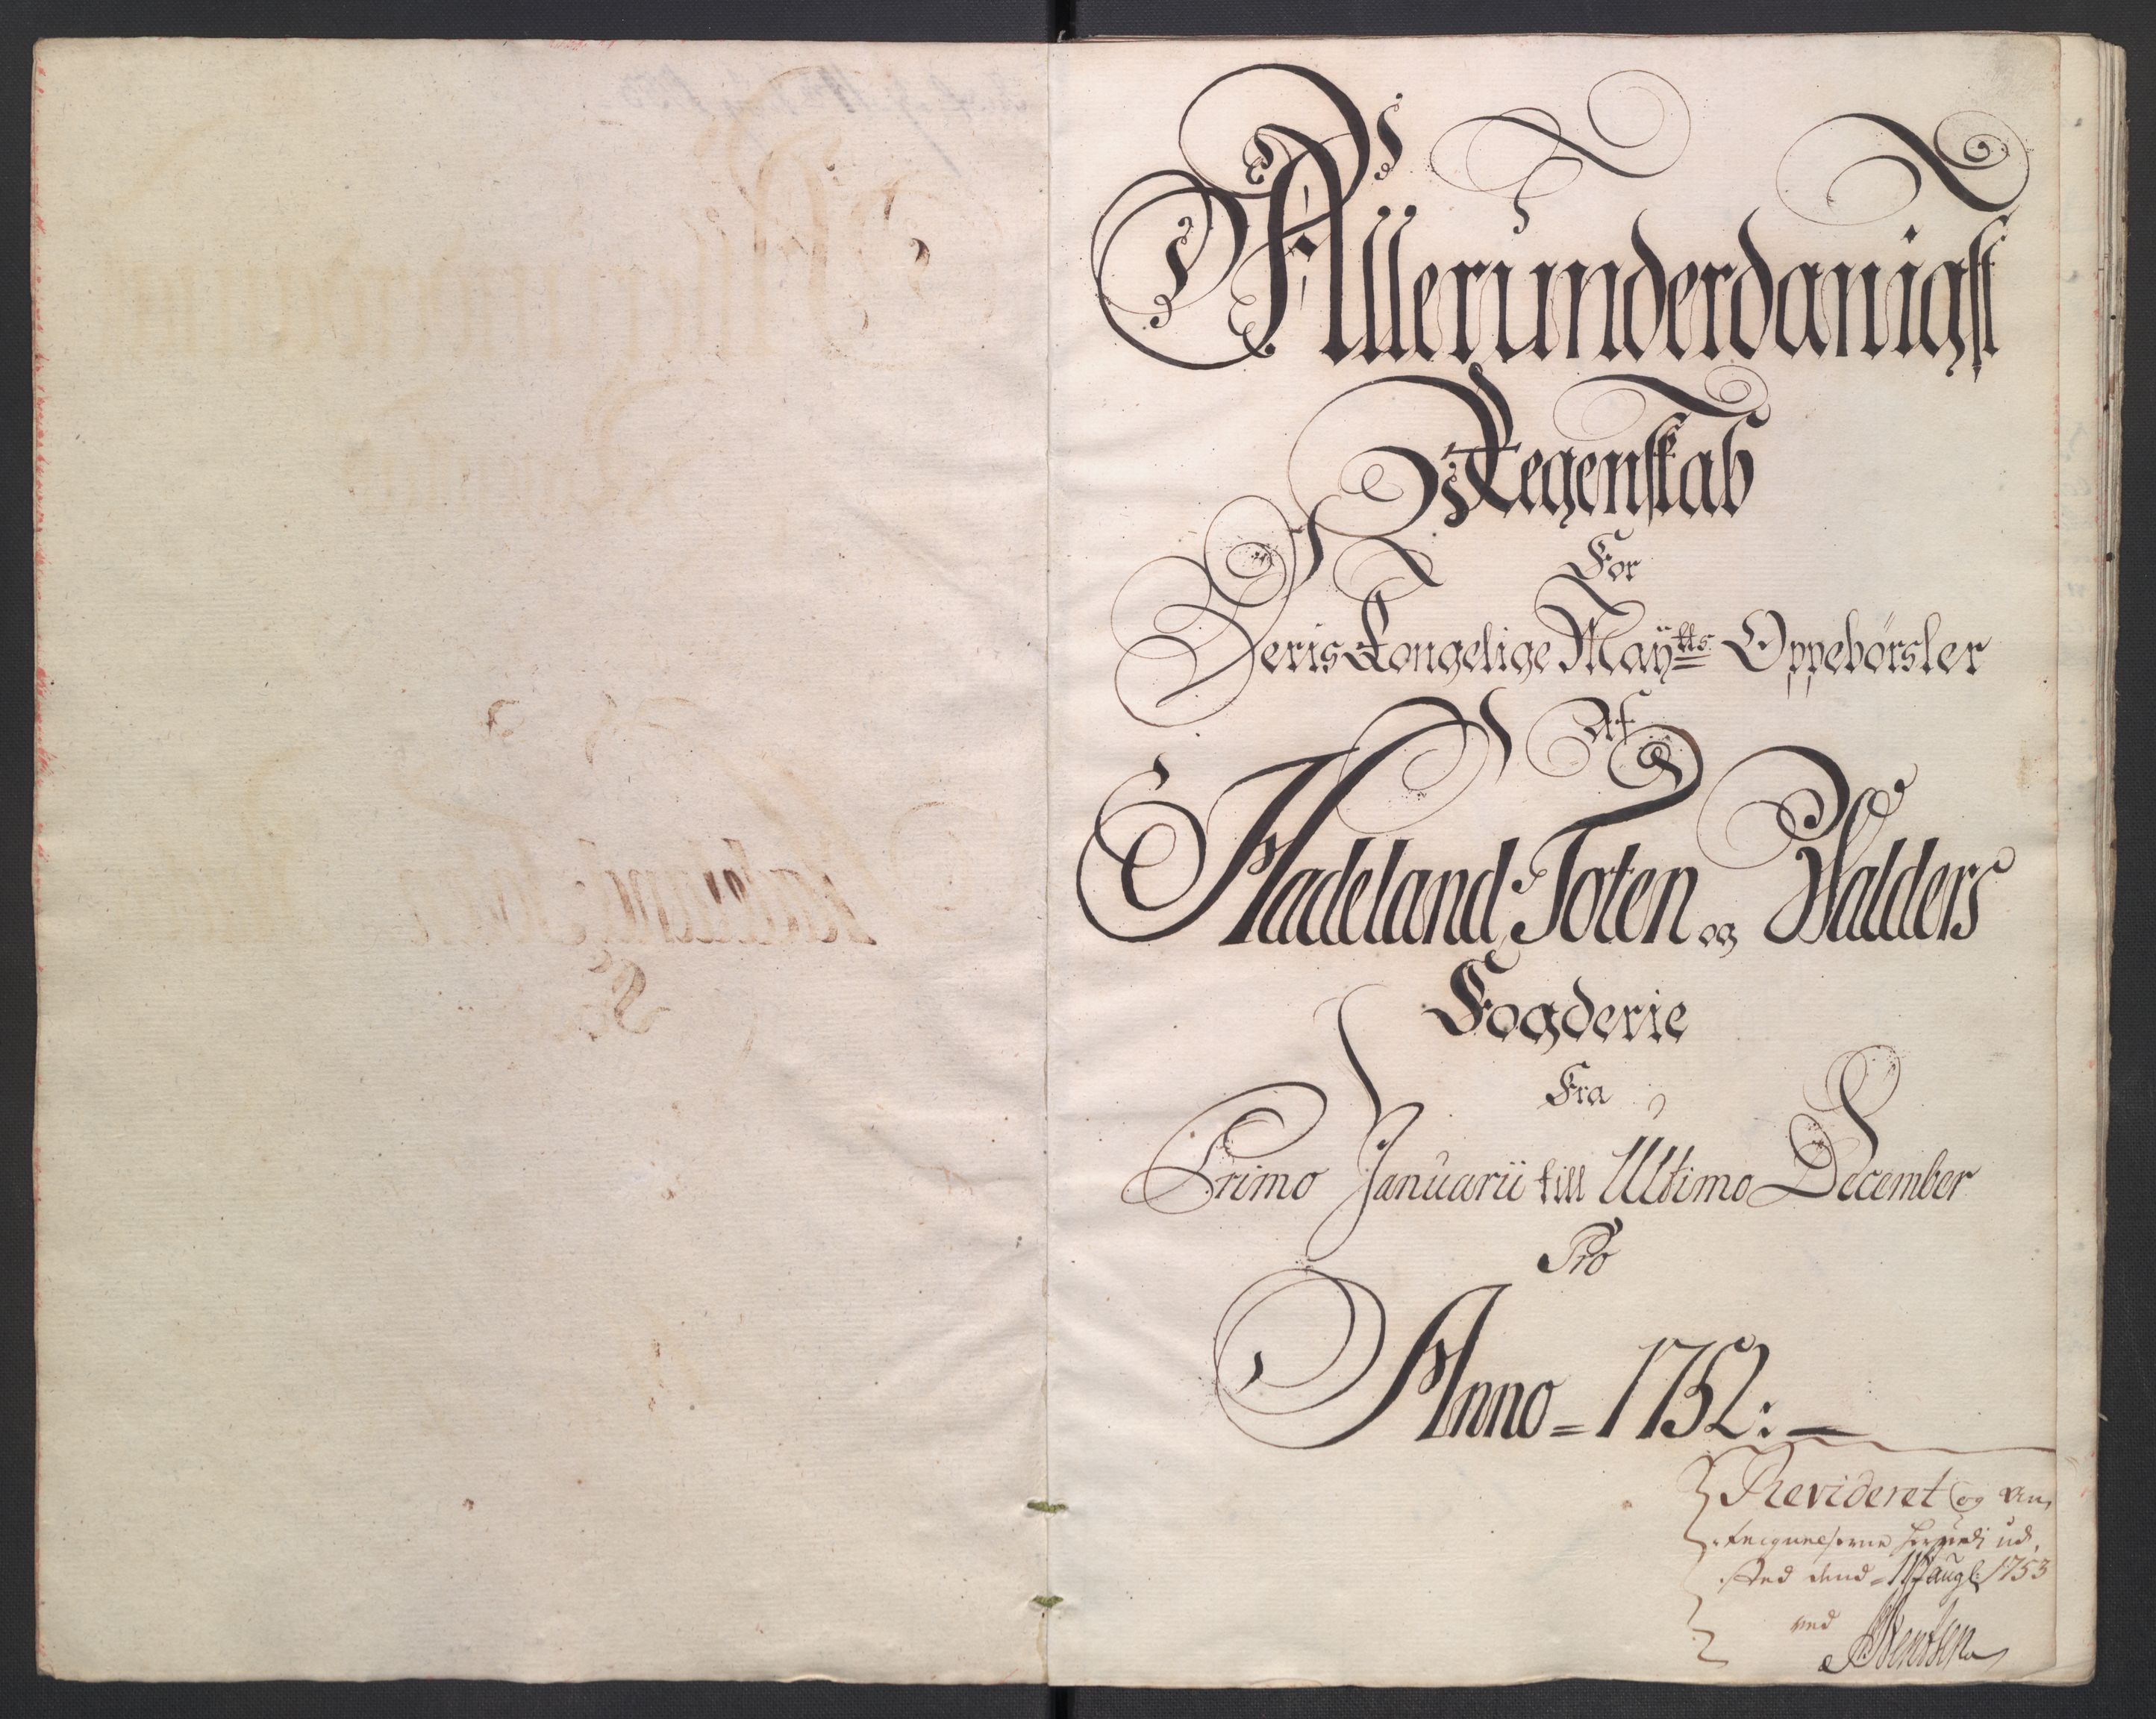 Allerunderdanigst
Regenskab
For
Deris Kongelige Maÿtts Oppebørsler
Af
Hadeland Toten og Walders
Fogderie
Fra
Primo Januarii till Ultimo December
Pro
Anno = 1752:
Revideret og An,
ud,
sted dend = 1753
ved